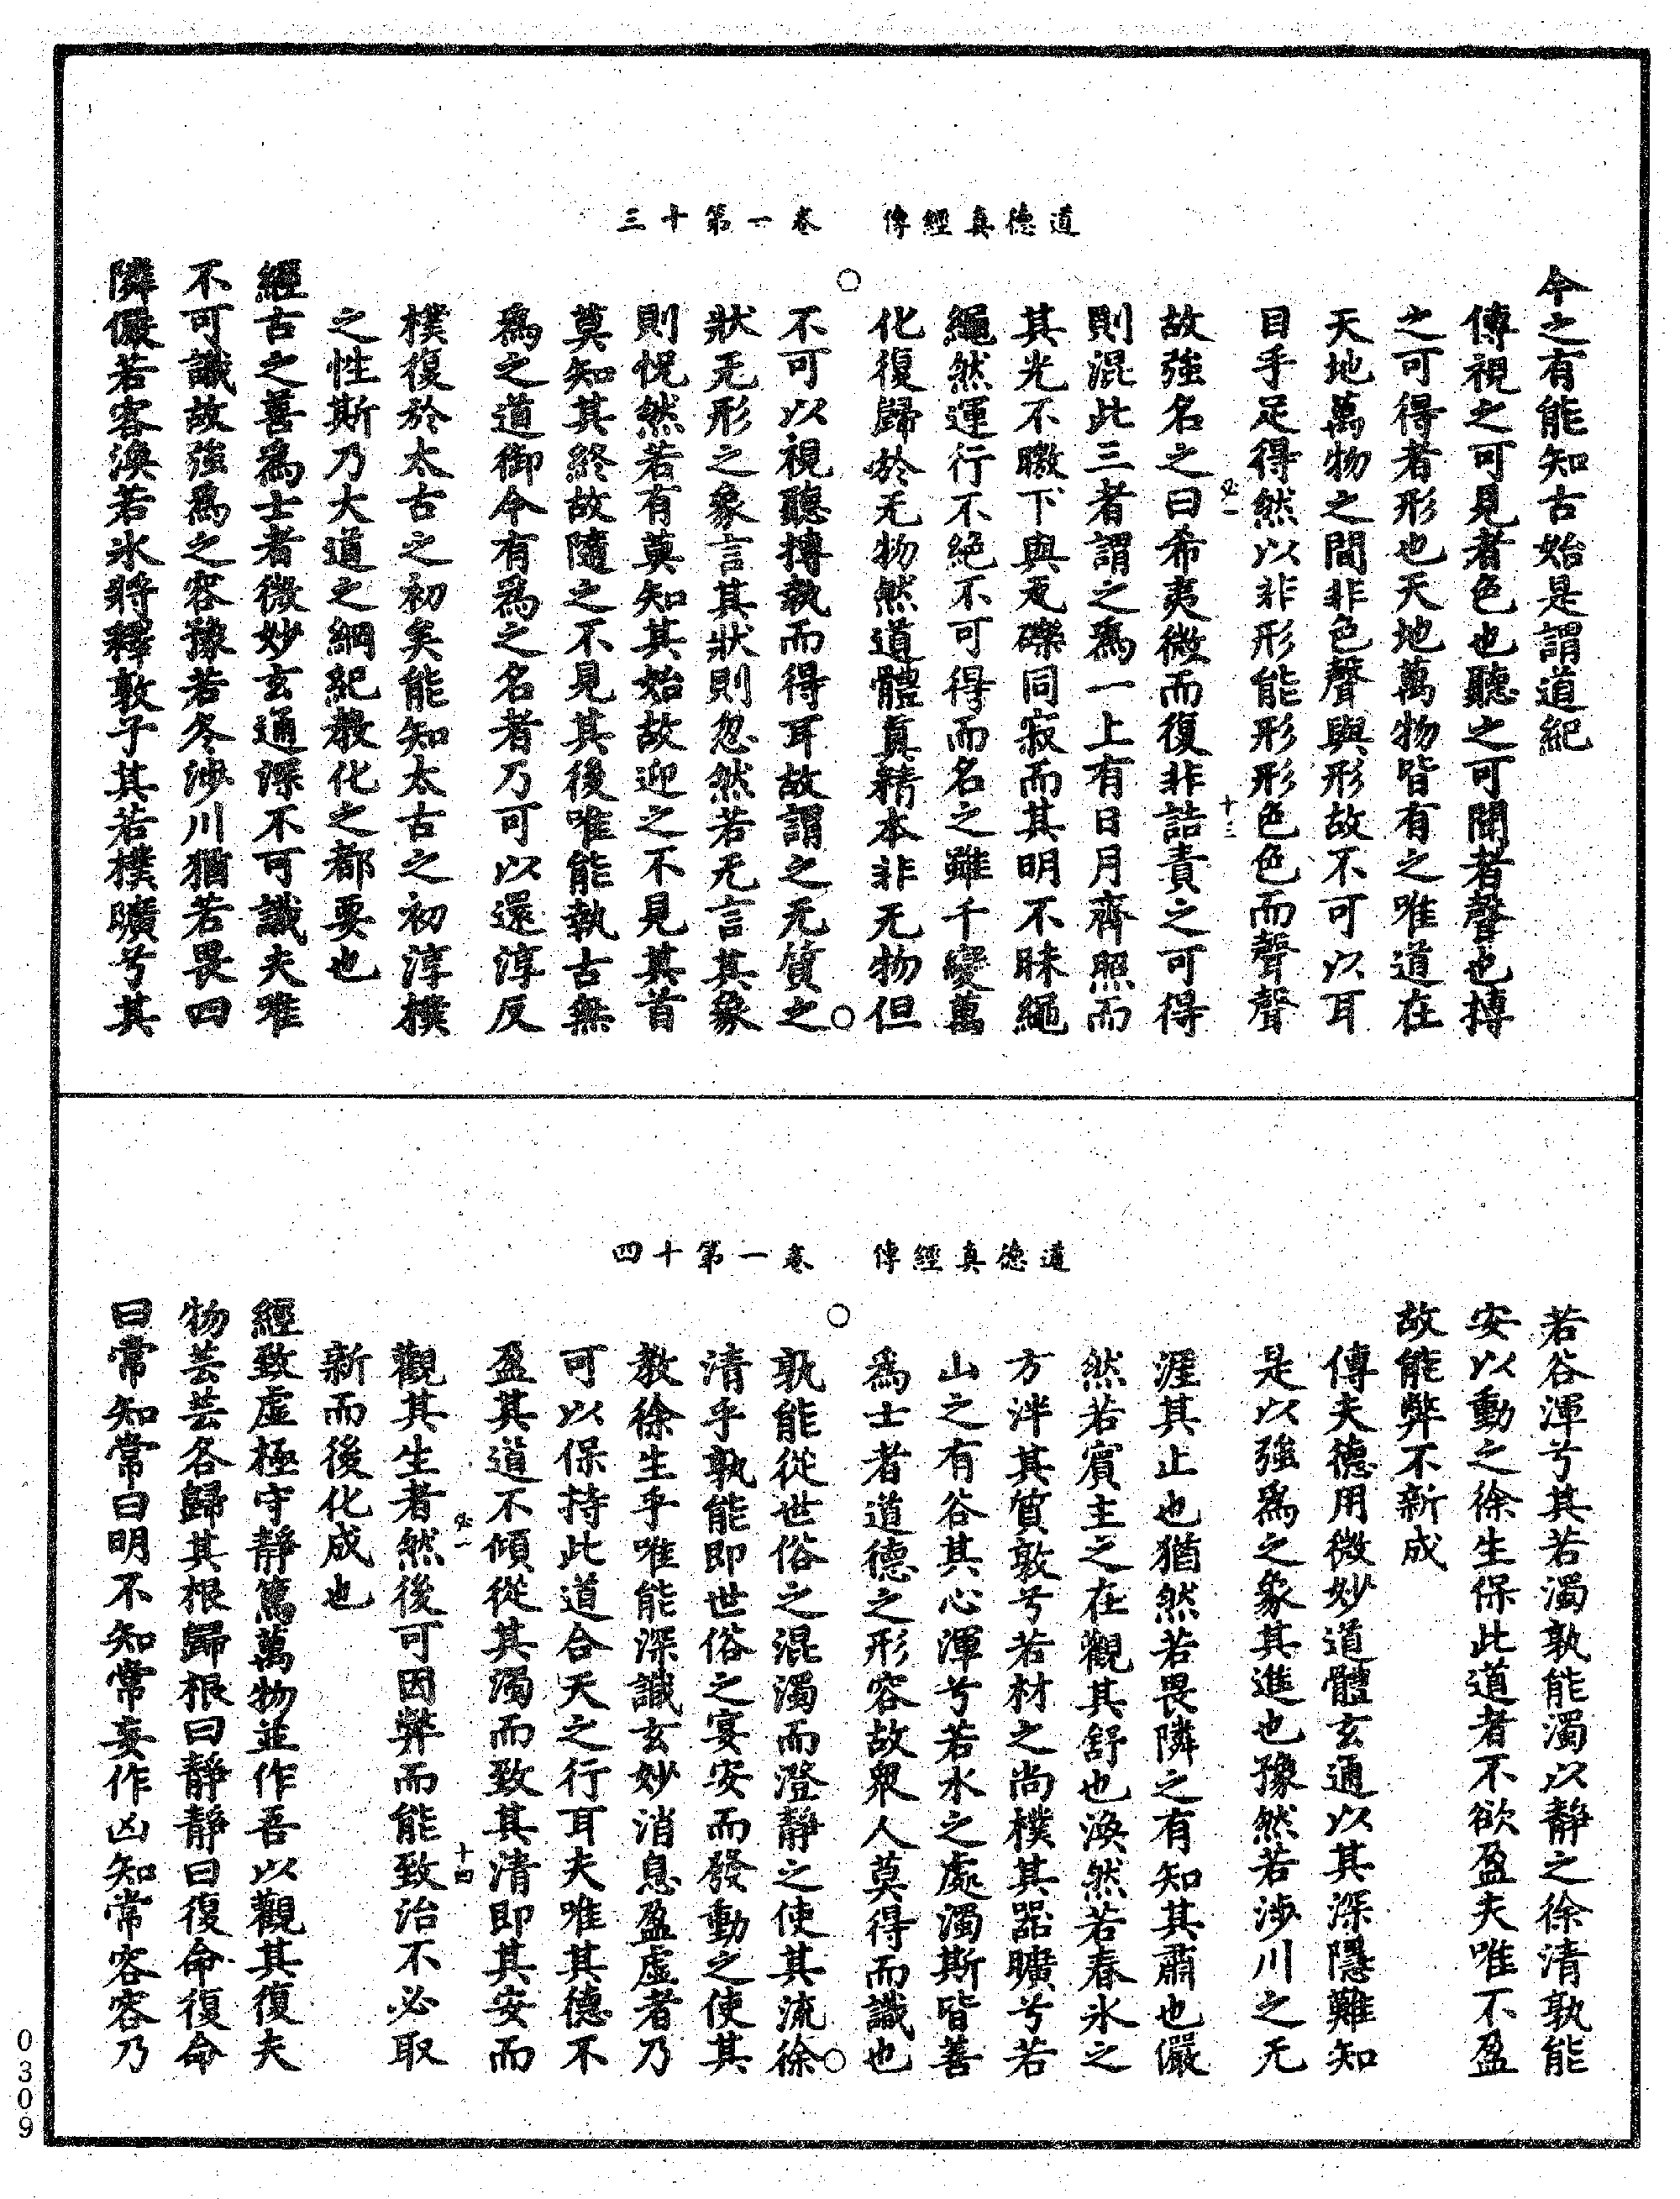 道德真經傳　卷一第十三
今之有能知古始是謂道紀
傳視之可見者色也聽之可聞者聲也摶
之可得者形也天地萬物皆有之唯道在
天地萬物之間非色聲與形故不可以耳
目手足得然以非形能形形色色而聲聲
必一　十三
故強名之曰希夷微而復非詰責之可得
則混此三者謂之爲一上有日月齊照而
其光不曒下與瓦礫同寂而其明不昧繩
繩然運行不絕不可得而名之雖千變萬
化復歸於无物然道體真精本非无物但
不可以視聽摶執而得耳故謂之无質之
狀无形之象言其狀則忽然若无言其象
則怳然若有莫知其始故迎之不見其首
莫知其終故隨之不見其後唯能執古無
爲之道御今有爲之名者乃可以還淳反
樸復於太古之初矣能知太古之初淳樸
之性斯乃大道之綱紀教化之都要也
經古之善爲士者微妙玄通深不可識夫唯
不可識故強爲之容豫若冬涉川猶若畏四
隣儼若客渙若氷將釋敦乎其若樸曠兮其
道德真經傳　卷一第十四
若谷渾兮其若濁孰能濁以靜之徐清孰能
安以動之徐生保此道者不欲盈夫唯不盈
故能弊不新成
傳夫德用微妙道體玄通以其深隱難知
是以強爲之象其進也豫然若涉川之无
涯其止也猶然若畏隣之有知其肅也儼
然若賓主之在觀其舒也渙然若春氷之
方泮其質敦兮若材之尚樸其器曠兮若
山之有谷其心渾兮若水之處濁斯皆善
爲士者道德之形容故衆人莫得而識也
孰能從世俗之混濁而澄靜之使其流徐
清乎孰能即世俗之宴安而發動之使其
教徐生乎唯能深識玄妙消息盈虛者乃
可以保持此道合天之行耳夫唯其德不
盈其道不傾從其濁而致其清即其安而
必一　十四
觀其生者然後可因弊而能致治不必取
新而後化成也
經致虛極守靜篤萬物並作吾以觀其復夫
物芸芸各歸其根歸根曰靜靜曰復命復命
曰常知常曰明不知常妄作凶知常容容乃
0309